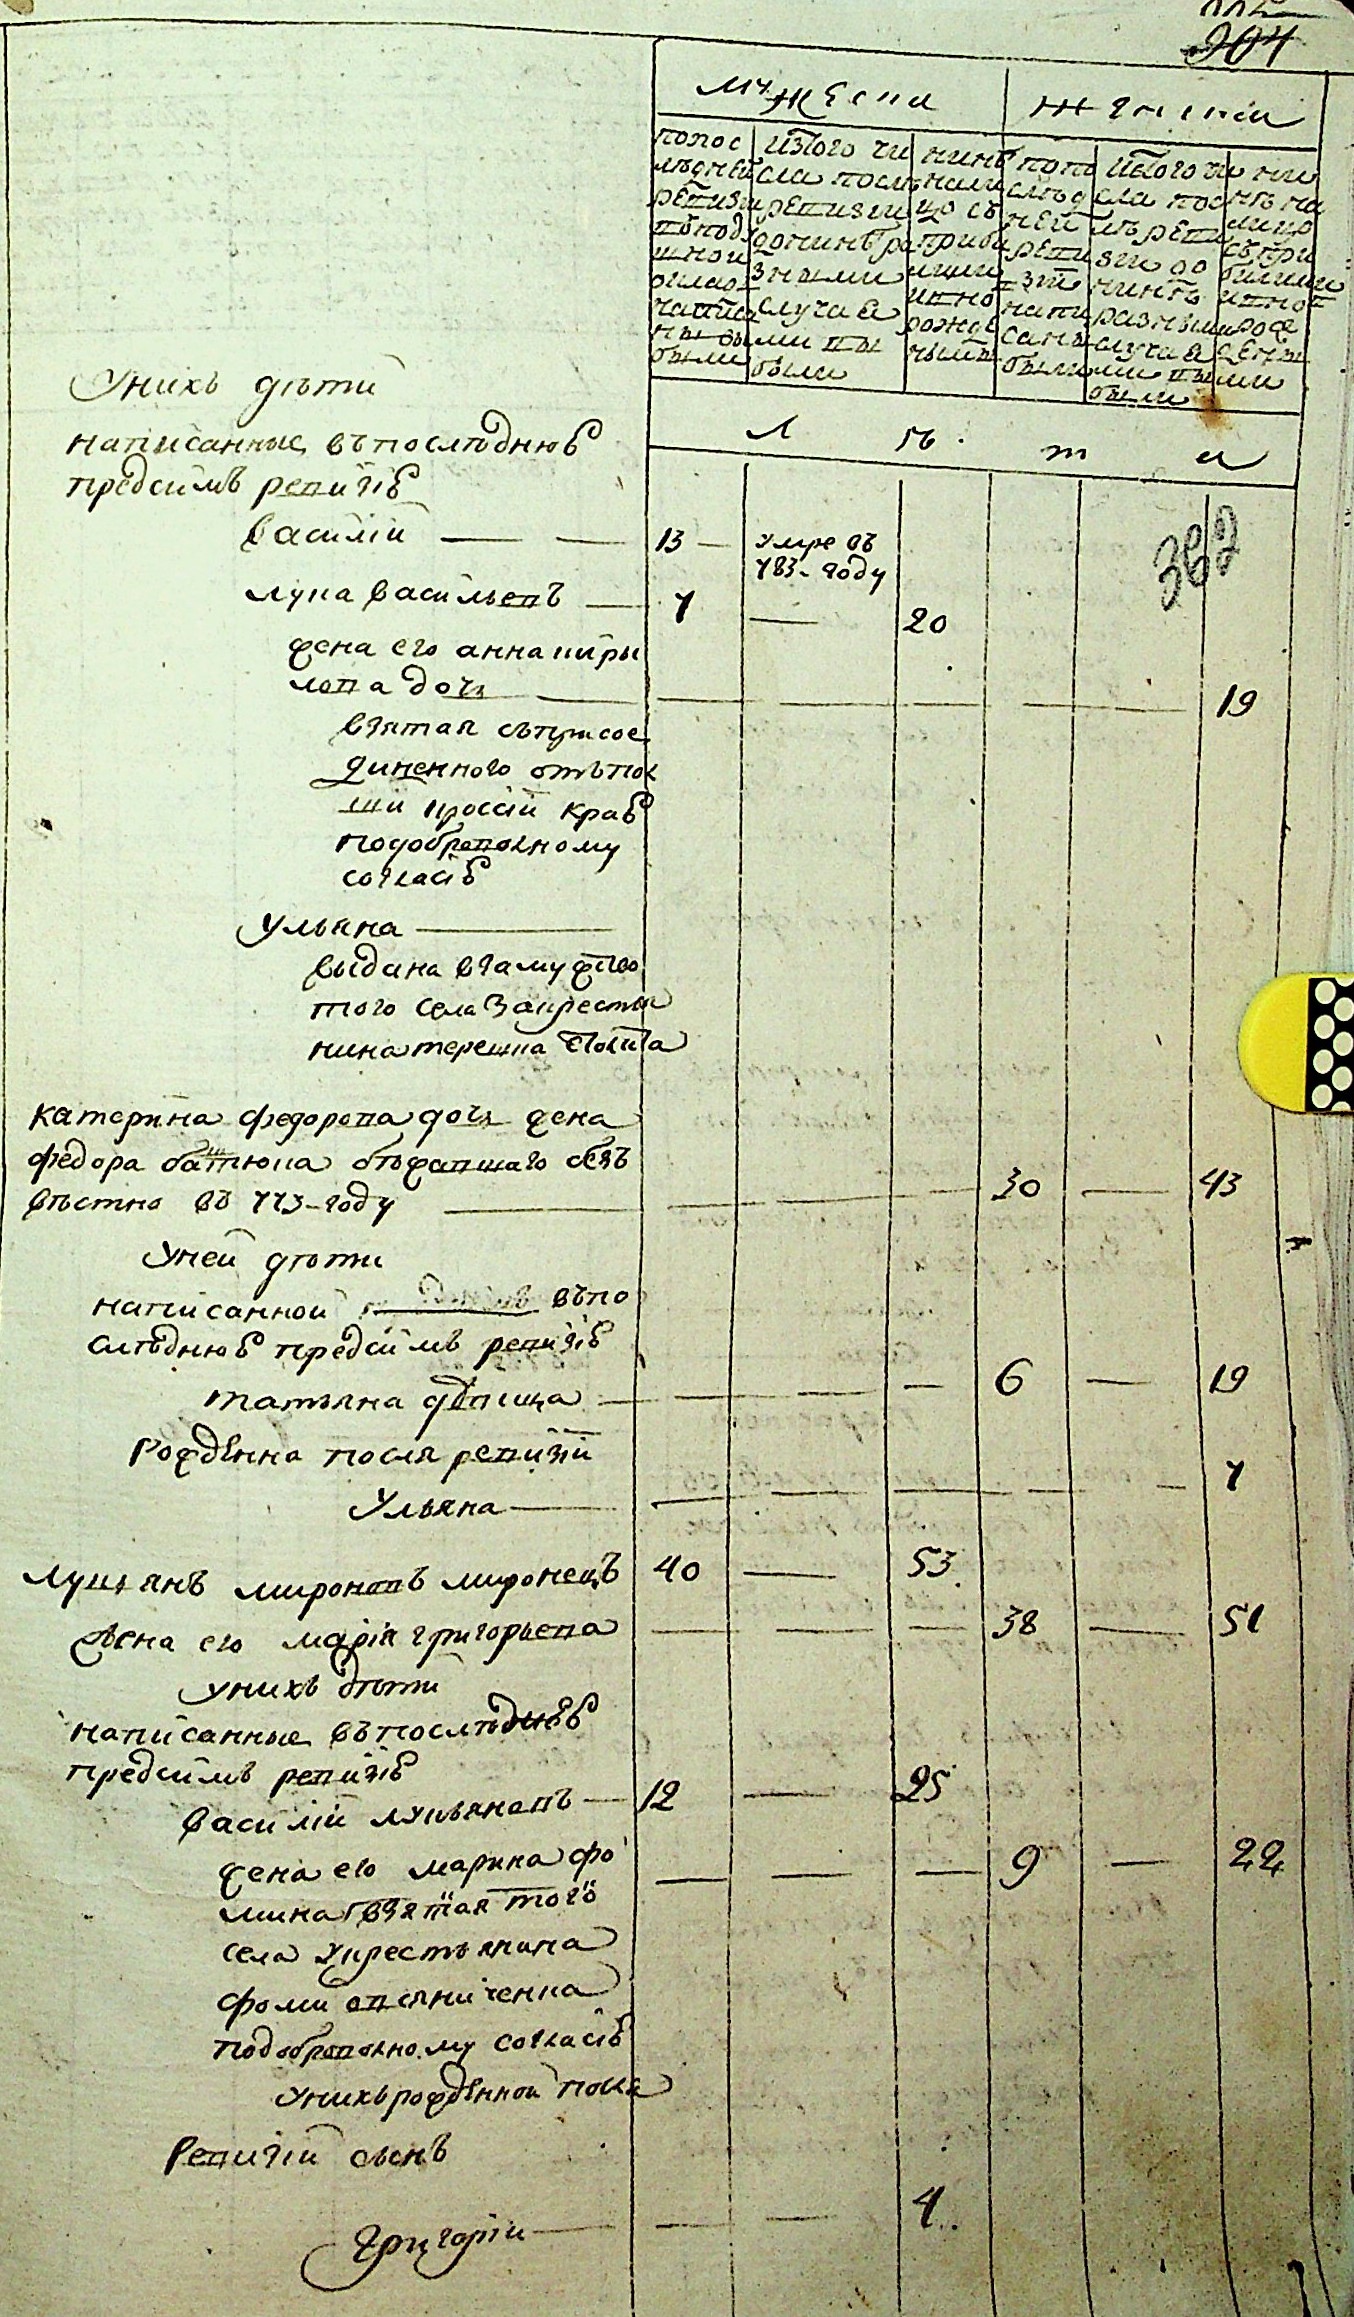 204
мужеска
женска
попос
лѣдней
ревизіи
въподу
шной
оклад
написа
ны
были
изтого чи
сла послѣ
ревизіи
донинѣ ра
зными
случаи
ми вы
были
нинѣ
нали
цо съ
прибы
лими
ивно
рожде
ными
попо
слѣд
ней
реви
зіи
напи
саны
были
изтого чи
сла пос
лѣ реви
зіи до
нинѣ
разными
случаи
ми вы
были
ни
нѣ на
лицо
съ при
былими
ивно
рож
дены
ми
л ѣ т а
Унихъ дѣти
написанные въ последнюю
предсимъ ревизію
Василій — — 13 — умре въ
783- году
362
Лука Васильевъ — 7 — 20
жена его анна киры
лова дочь — 19
взятая съ присое
диненного отъ пол
ши кросіи краю
подобровольному
согласію
Ульяна —
выдана взамужство
того села закрестья
нина терешка
катерина федорова дочь жена
федора батюка бѣжавшаго безъ
вѣстно въ 773-году — 30 — 43
Уней дѣти
написанной въ по
слѣднюю предсимъ ревизію
татьяна дѣвица — 6 — 19
Рожденна посля ревизіи
Ульяна — 7
Лукіянъ мироновъ миронецъ 40 — 53
жена его марія григорьева — 38 — 51
унихъ дѣти
написанные въ послѣднюю
предсимъ ревизію
Василій лукьяновъ — 12 — 25
жена его марина фо
мина взятая того
села укрестьянина
фоми
подобровольному согласію
унихъ рожденной посля
Ревизіи сынъ
Григорій — 4